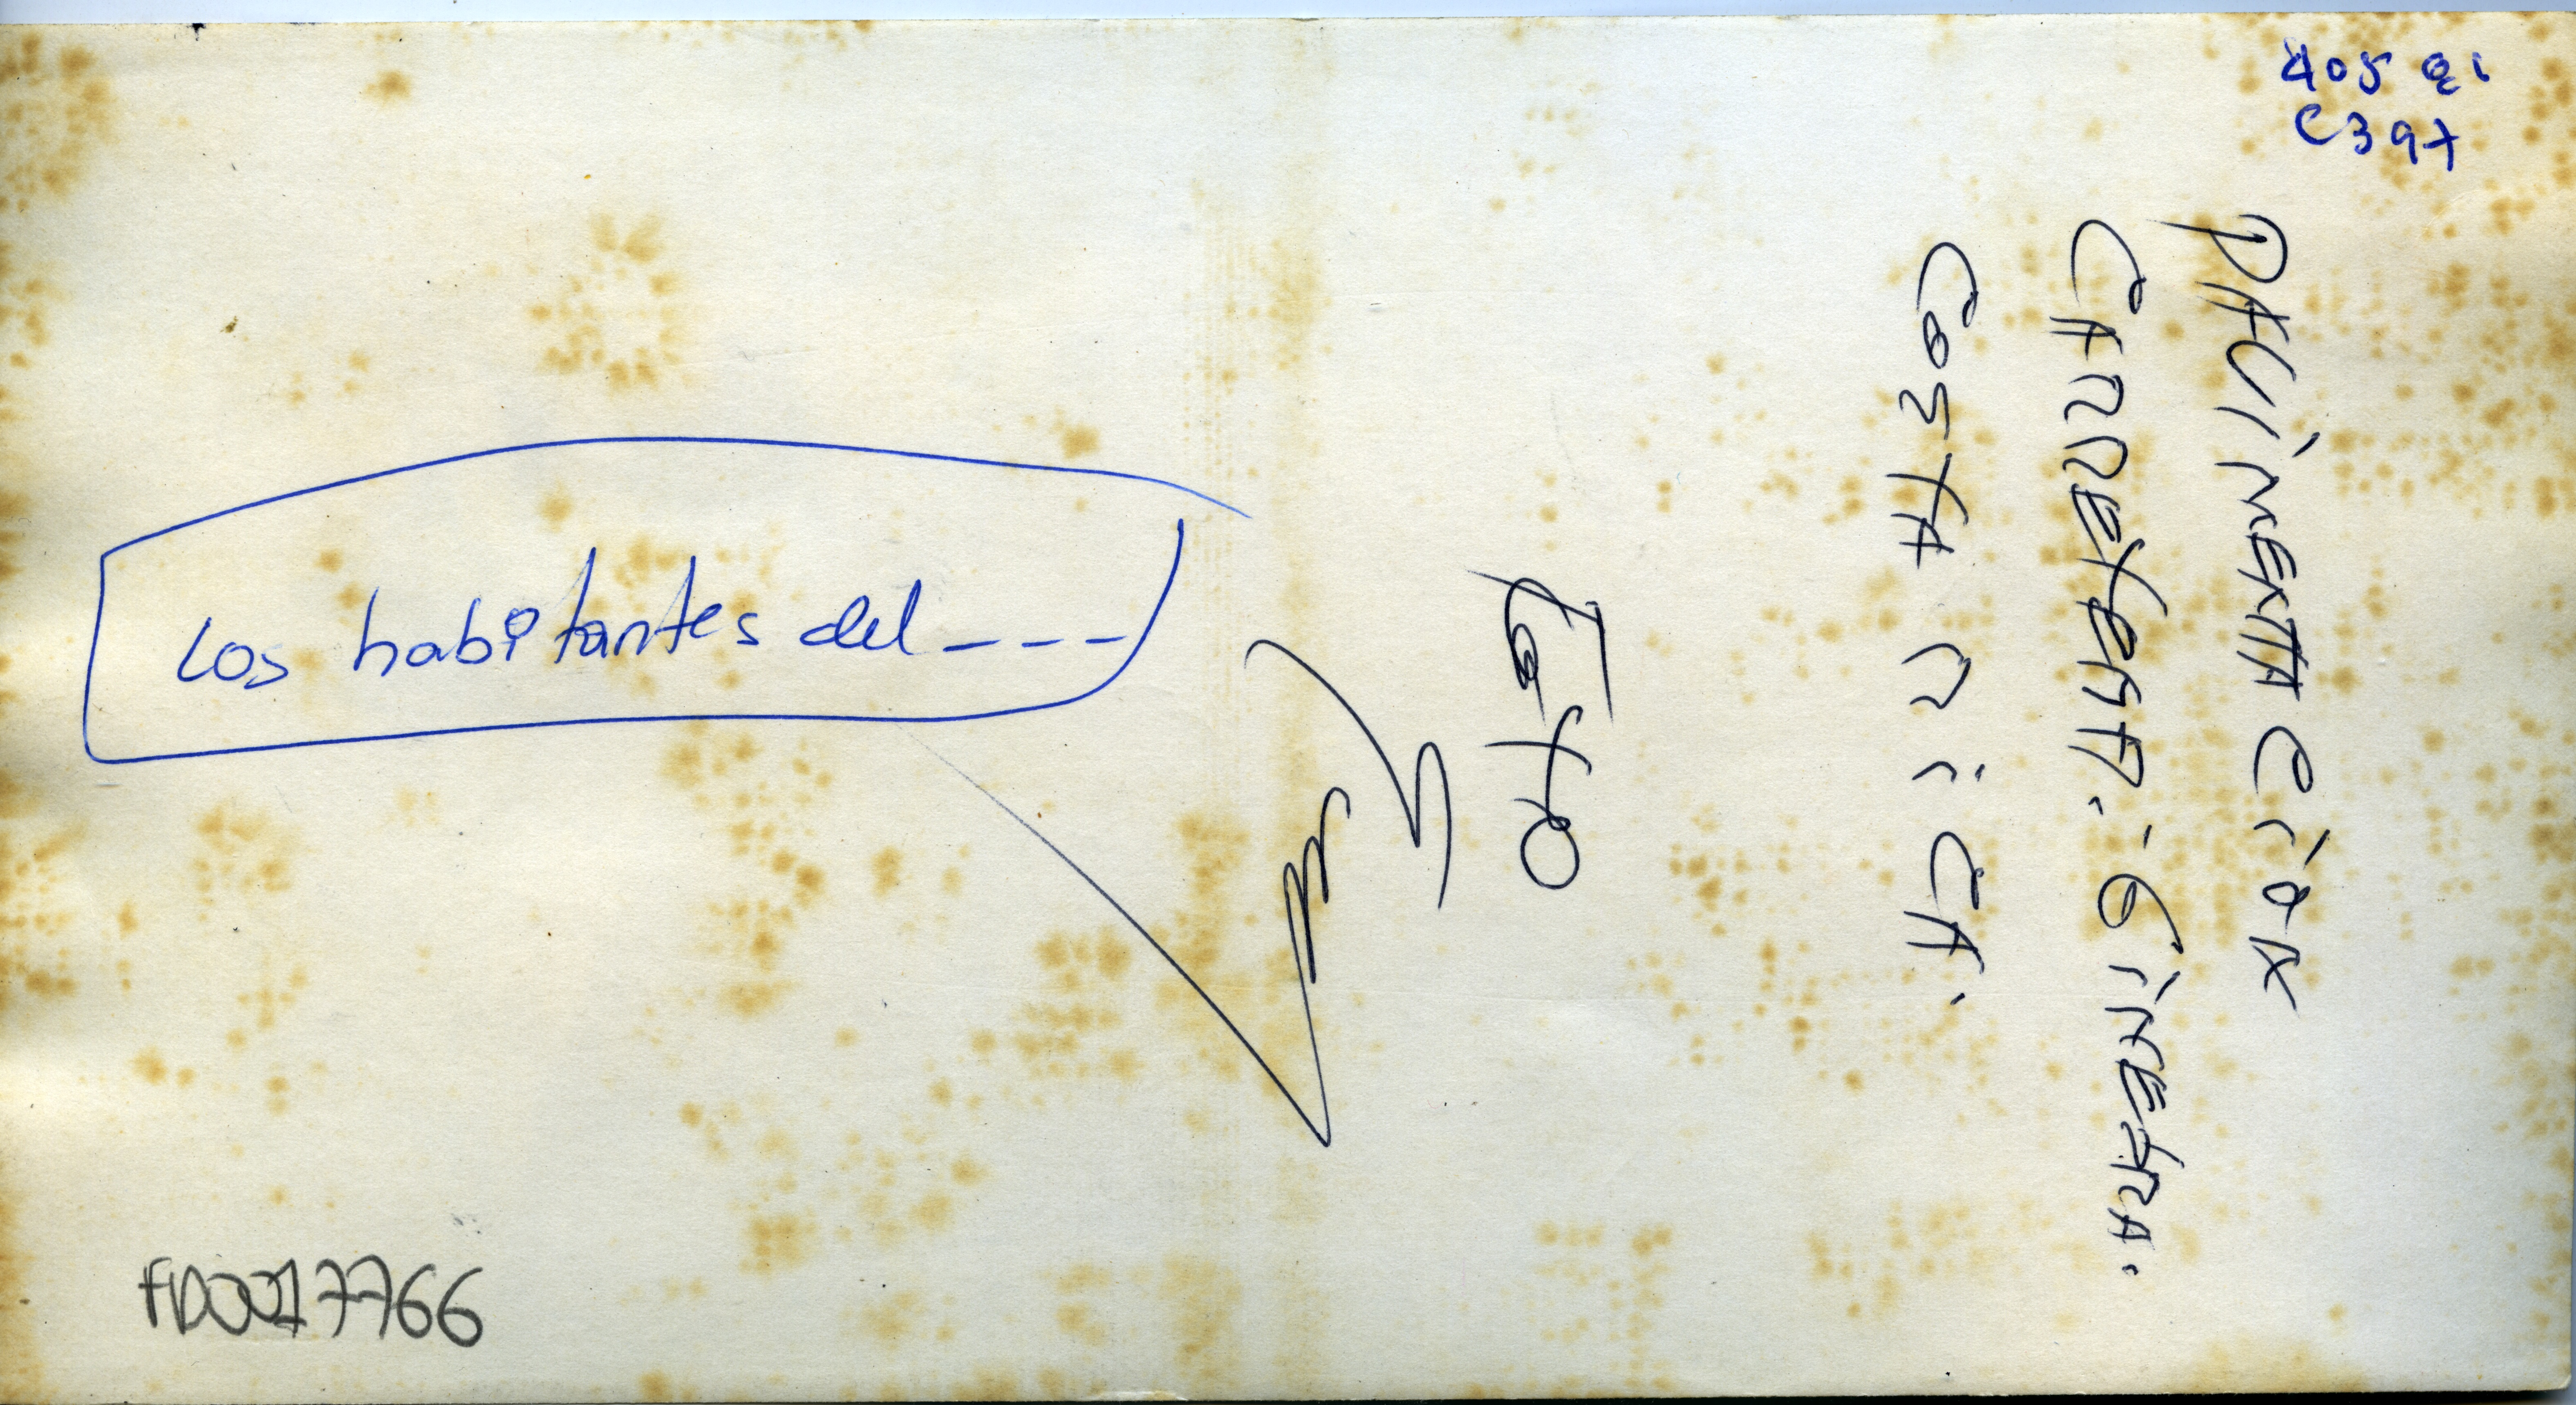 C397
PAVIMENTACION
CARRETERA.- GINESTRA.
COSTA RICA.
Foto
Los habitantes del ----
FD0017766